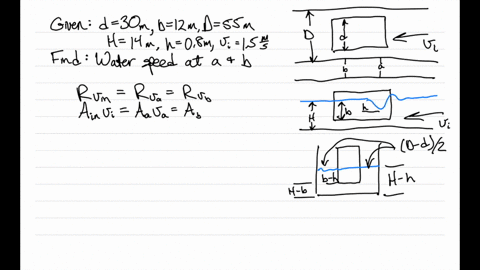 Given: d=30m, b=12m, D=55m
H=14m, h=0.8m, v_i=1.5 m/s
Find: Water speed at a & b
R_Vin = R_Va = R_Vb
A_in v_i = A_a v_a = A_b
D
d
v_i
b
a
H
b
h
v_i
(D-d)/2
b-h
H-h
H-b